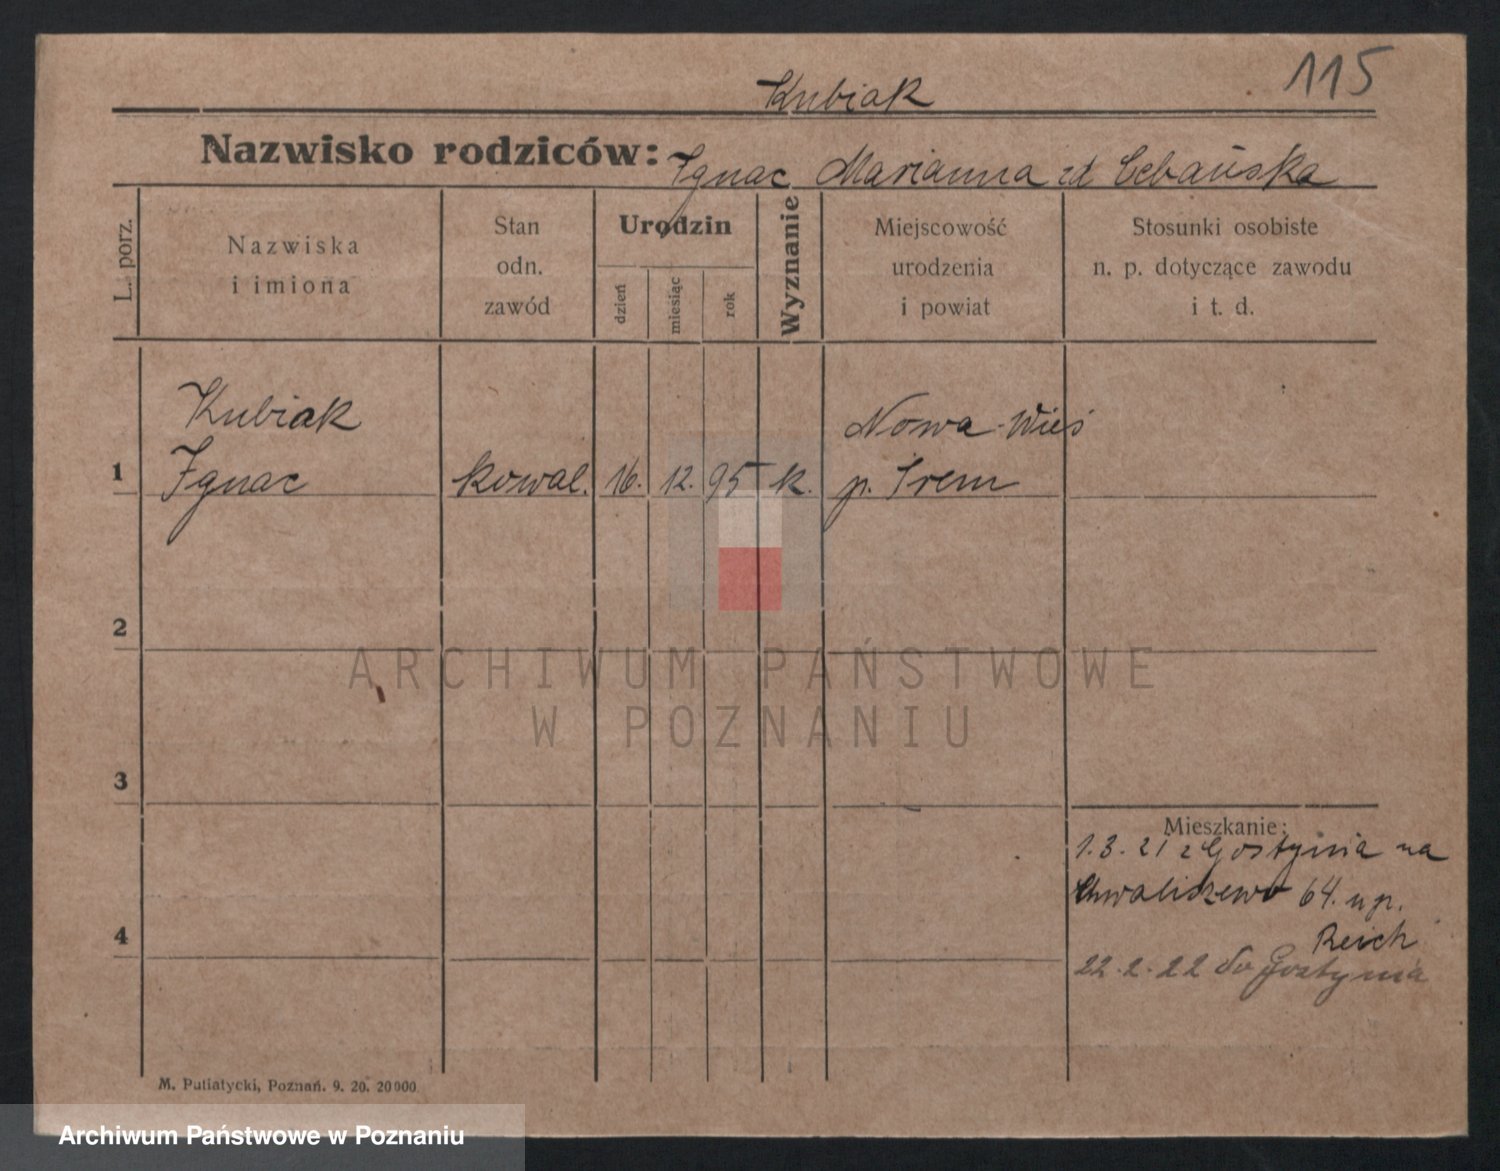 115
Kubiak
Nazwisko rodziców: Ignac Marianna zd Cebańska
L. porz.
Nazwiska
i imiona
Stan
odn.
zawód
Urodzin
dzień
miesiąc
rok
Wyznanie
Miejscowość
urodzenia
i powiat
Stosunki osobiste
n. p. dotyczące zawodu
i t. d.
Kubiak
Nowa-Wieś
1 Ignac kowal. 16. 12. 95 k. p. Śrem
2
ARCHIWUM PAŃSTWOWE
W POZNANIU
3
Mieszkanie:
1.3.21 z Gostynia na
Chwaliszewo 64. u p.
Reich
4
22.2.22 do Gostynia
M. Putiatycki, Poznań. 9. 20. 20000.
Archiwum Państwowe w Poznaniu